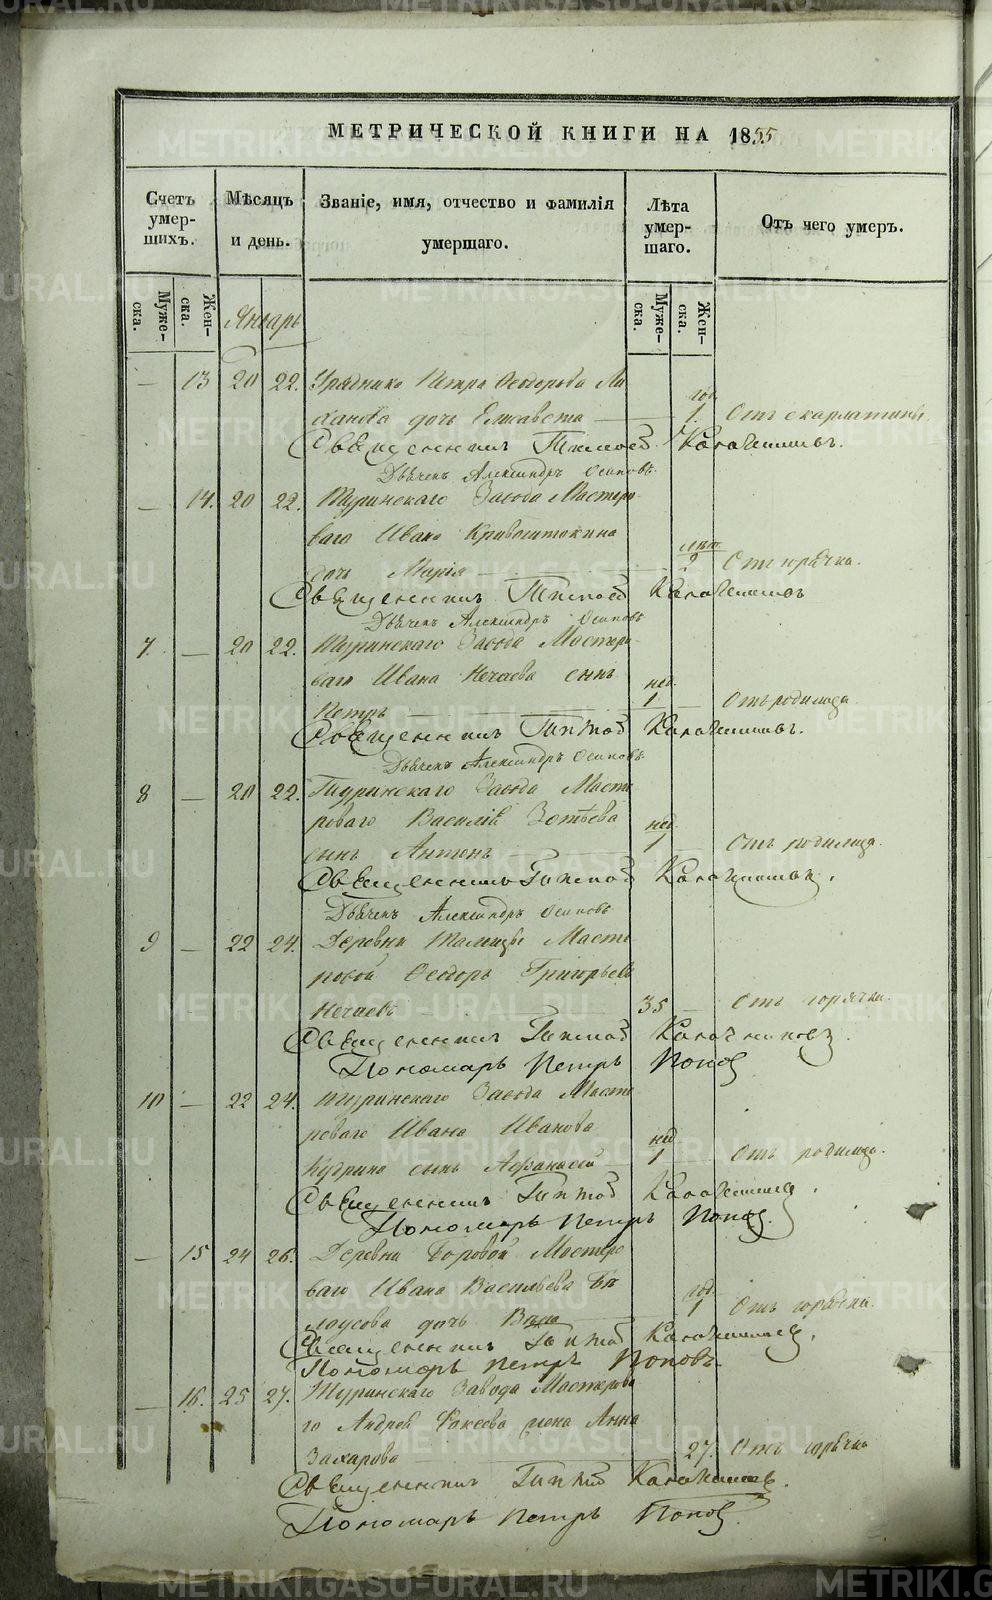 МЕТРИЧЕСКОЙ КНИГИ НА 1855
Счетъ умершихъ.
Мѣсяцъ и день.
Званіе, имя, отчество и фамилія умершаго.
Лѣта умершаго.
Отъ чего умеръ.
Мужеска.
Женска.
Мужеска.
Женска.
Январь
— 13 20 22. Урядника Петра Ѳеодорова
дочь Елисавета — год. 1. Отъ скарлатины.
Священникъ
Дьячекъ Александръ Осиповъ.
— 14. 20 22. Туринскаго Завода Мастеро-
ваго Ивана Кривощокина
дочь Марія — 2 Отъ горячки.
Священникъ
Дьячекъ Александръ Осиповъ
7. — 20 22. Туринскаго Завода Мастеро-
ваго Ивана Нечаева сынъ
Петръ — нед. 1 — Отъ родимца.
Священникъ
Дьячекъ Александръ Осиповъ.
8 — 20 22. Туринскаго Завода Масте-
роваго Василія Зотѣева
сынъ Антонъ нед. 1 Отъ родимца.
Священникъ
Дьячекъ Александръ Осиповъ
9 — 22 24. Деревни Масте-
ровой Ѳеодоръ Григорьевъ
Нечаевъ 35 — Отъ горячки.
Священникъ
Пономарь Петръ Попов
10 — 22 24. Туринскаго Завода Масте-
роваго Ивана Иванова
Кудрина сынъ Афанасей — нед. 1 Отъ родимца.
Священникъ
Пономарь Петръ Попов.
— 15 24 26. Деревни Боровой Мастеро-
ваго Ивана Васильева Бѣ-
лоусова дочь — год. 1 Отъ горячки.
Священникъ
Пономарь Петръ Поповъ.
— 16. 25 27. Туринскаго Завода Мастерова-
го Андрея Фокеева жена Анна
Захарова — 27. Отъ горячки
Священникъ
Пономарь Петръ Попов.
METRIKI.GASO-URAL.RU